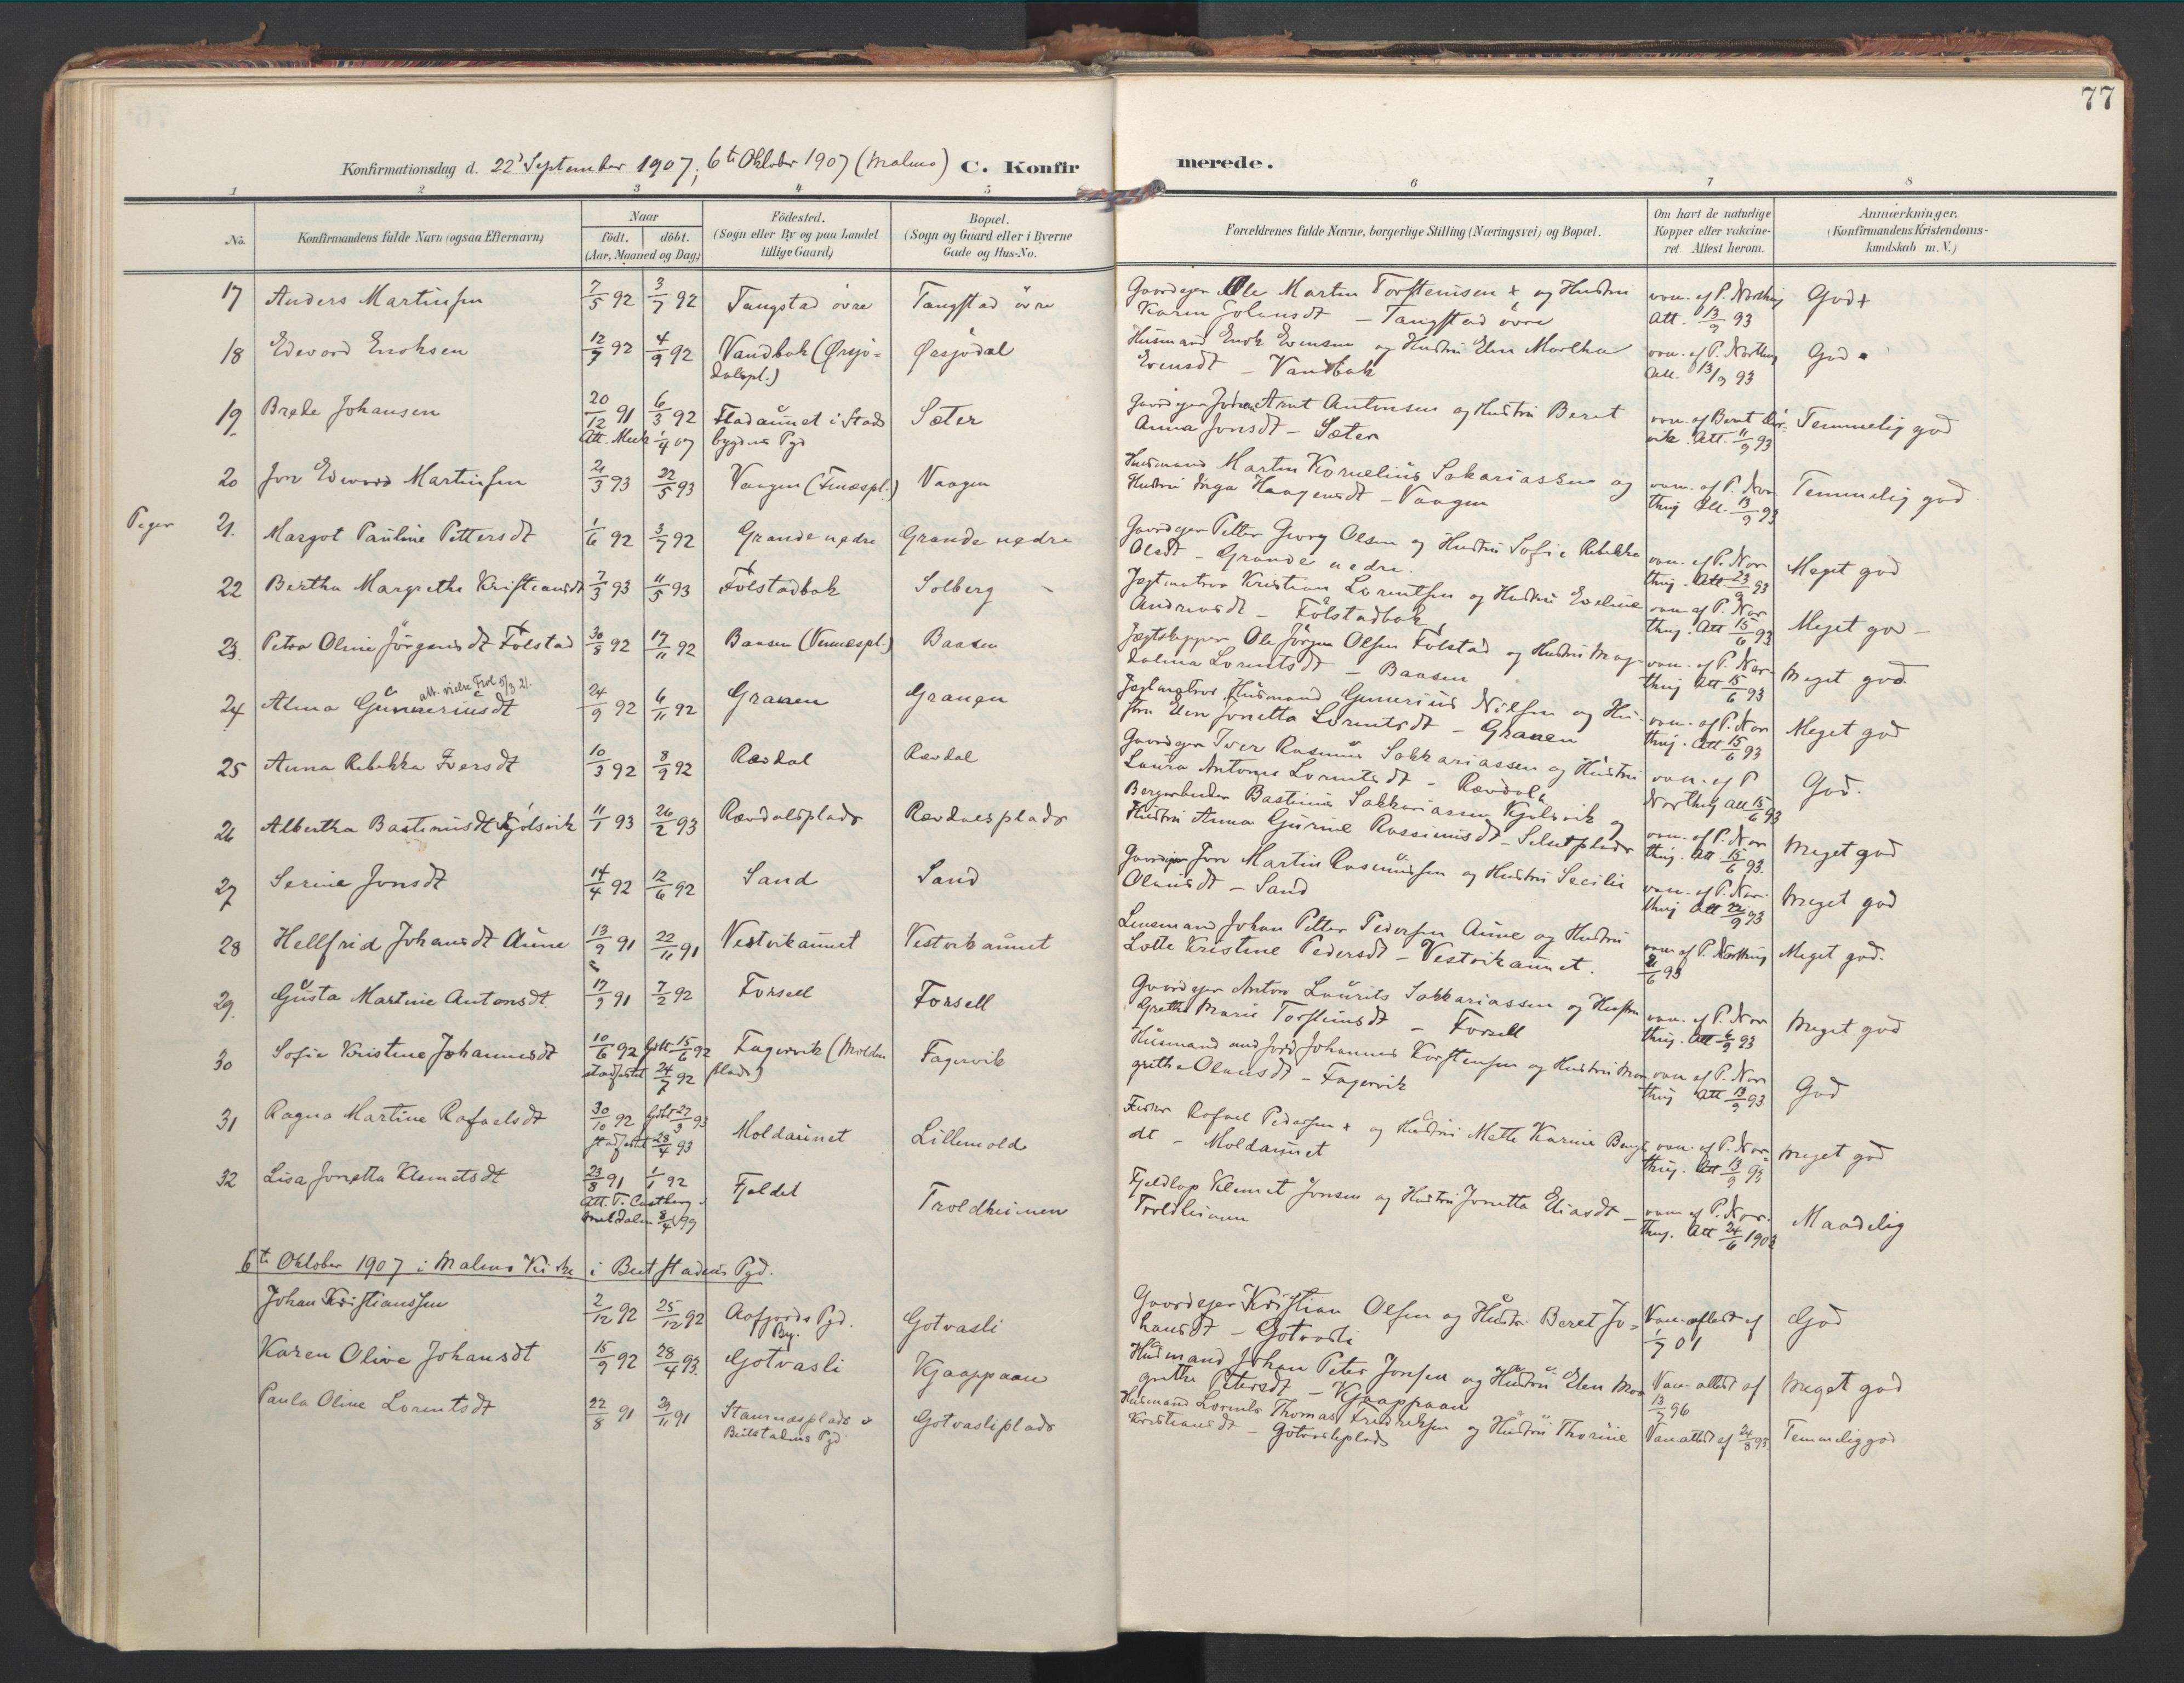 77
Konfirmationsdag d. 22' September 1907; 6te Oktober 1907 (Malmo) C. Konfirmerede.
1 2 3 4 5 6 7 8
No. Konfirmandens fulde Navn (ogsaa Efternavn) Naar født. døbt. (Aar, Maaned og Dag) Fødested. (Sogn eller By og paa Landet tillige Gaard) Bopæl. (Sogn og Gaard eller i Byerne Gade og Hus-No. Forældrenes fulde Navne, borgerlige Stilling (Næringsvei) og Bopæl. Om havt de naturlige Kopper eller vakcineret. Attest herom. Anmærkninger. (Konfirmandens Kristendomskundskab m. V.)
17 Anders Martinsen 7/5 92 3/7 92 Tangstad övre Tangstad övre Gaardejer Ole Martin Torstensen + og Hustru
Karen Johansdt – Tangstad övre vac. af P. Northug Att. 13/9 93 God +
18 Edevard Enoksen 12/7 92 4/9 92 Vandbak (Ørsjödalspl.) Øresjödal Husmand Enok Evensen og Hustru Elen Martha
Evensdt – Vandbak vac. af P. Northug Att. 13/9 93 God
19 Brede Johansen 20/12 91 6/3 92 Stadaunet i Stadsbygdens Pgd Sæter Gaardejer Johan Arnt Antonsen og Hustru Beret
Att. Meek 1/4 07
Anna Jonsdt – Sæter Att. 11/9 93 Temmelig god
20 Jon Edward Martinsen 21/3 93 22/5 93 Vaagen (Finæspl.) Vaagen Husmand Martin Kornelius Sakariassen og
Hustru Inga Haagensdt – Vaagen vac. af P. Northug Att. 13/9 93 Temmelig god
Peger 21. Margot Pauline Pettersdt 1/6 92 3/7 92 Grande nedre Grande nedre Gaardejer Petter Georg Olsen og Hustru Sofie Rebekka
Olsdt – Grande nedre. vac. af P. Northug. Att 23/9 93 Meget god
22 Bertha Margrethe Kristiansdt 7/3 93 11/5 93 Folstadbak Solberg Jægtmatros Kristian Lorentsen og Hustru Eveline
Andreasdt – Folstadbak vac. af P. Northug. Att 15/6 93 Meget god –
23. Petra Oline Jörgensdt Folstad 30/8 92 17/11 92 Baasen (Vennespl.) Baasen Jægtskipper Ole Jörgen Olsen Folstad og Hustru Magdalena Lorentsdt – Baasen vac. af P. Northug Att 15/6 93 Meget god
24 Alma Gunneriusdt 24/9 92 6/11 92 Granen Granen Jægtmatros, Husmand Gunerius Nilsen og Hustru Elen Jonetta Lorentsdt – Granen vac. af P. Northug. Att 15/6 93 Meget god
25 Anna Rebekka Iversdt 10/3 92 8/9 92 Rævdal Rævdal Gaardejer Iver Rasmus Sakkariassen og Hustru
Laura Antonie Lorentsdt – Rævdal vac. af P Northug Att 15/6 93 God.
26 Albertha Bastinusdt Kjölsvik 11/1 93 26/2 93 Rævdalsplads Rævdalsplads Bergarbeider Bastinus Sakkariassen Kjölsvik og
Hustru Anna Gurine Rassinusdt – Selsetplads vac. af P. Northug. Att 15/6 93. Meget god
27 Serine Jonsdt 14/4 92 12/6 92 Sand Sand Gaardejer Jon Martin Rasmussen og Hustru Secilie
Olausdt – Sand vac. af P. Northug Att 22/9 93 Meget god
28 Hellfrid Johansdt Aune 13/9 91 22/11 91 Vestvikaunet Vestvikaunet Lensmand Johan Petter Pedersen Aune og Hustru
Lotte Kristine Pedersdt – Vestvikaunet. vac. af P. Northug 21/6 93 Meget god.
29. Gusta Martine Antonsdt. 17/9 91 7/2 92 Forsell Forsell Gaardejer Anton Laurits Sakkariassen og Hustru
Grethe Marie Torstensdt – Forsell vac. af P. Northug. Att 6/9 93 Meget god
30 Sofie Kristine Johannesdt 10/6 92 hjdt. 15/6 92 stadfæstet 24/7 92 Fagervik (Moldenplads) Fagervik Husmand med Jord Johannes Korstensen og Hustru Margrethe Olausdt – Fagervik vac. af P. Northug Att 13/9 93 God
31 Ragna Martine Rafaelsdt 30/10 92 hjdt 27/3 93 stadfæstet 28/4 93 Moldaunet Lillemold Fisker Rafael Pedersen + og Hustru Mette Karine Bengtsdt – Moldaunet vac. af P. Northug. Att 13/9 93 Meget god
32 Lisa Jonetta Klemetsdt 23/8 91 1/1 92 Fjeldet Troldheimen Fjeldlap Klemet Jonsen og Hustru Jonetta Eliasdt –
Att. T. Castberg Meldalen 8/4 99
Troldheimen vac. af P. Northug. Att 24/6 1903 Maadelig
6te Oktober 1907 i Malmo Kirke i Beitstadens Pgd.
Johan Kristianssen 2/12 92 25/12 92 Aafjords Pgd. Gotvasli Gaardejer Kristian Olsen og Hustru Beret Johansdt – Gotvasli Vac. attest af 1/7 01 God
Karen Olive Johansdt 15/9 92 28/4 93. Gotvasli Kjaappaan Husmand Johan Peter Jonsen og Hustru Elen Margrethe Petersdt – Kjaappaan Vac. attest af 13/7 96 Meget god
Paula Oline Lorentsdt 22/8 91 29/11 91 Stamnæsplads Beitstadens Pgd Gotvasliplads Husmand Lorents Thomas Fredriksen og Hustru Thorine
Kristiansdt – Gotvasliplads Vac attest af 24/8 93. Temmelig god